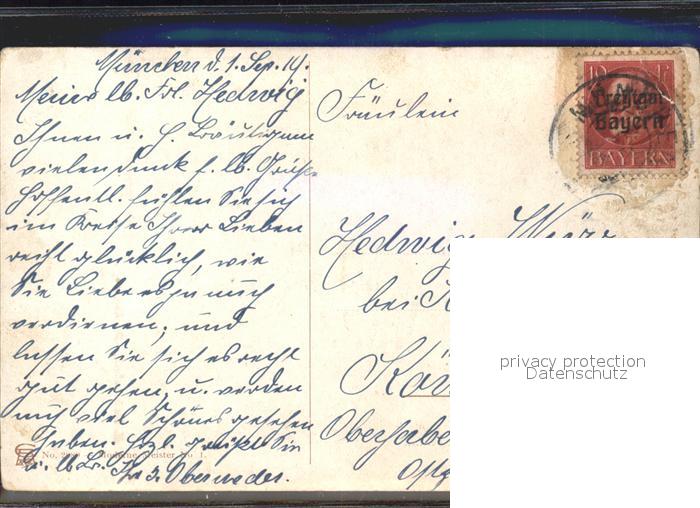 München d. 1. Sep. 19.
Meine lb. Frl. Hedwig
Ihnen u. H. Bräutigam
vielen dank f. lb. Grüße
Hoffentl. fühlen Sie sich
im Kreise Ihrer Lieben
recht glücklich, wie
Sie Liebe es ja auch
verdienen; und
lassen Sie sich es recht
gut gehen, u. werden
auch viel Schönes gesehen
haben. Herzl. grüßt Sie
u. lb. Br. Ihr Oberneder.
No. Moderne Meister No 1.
Fräulein
Hedwig
bei
Oberhabe
10
Freistaat
Bayern
BAYERN
privacy protection
Datenschutz